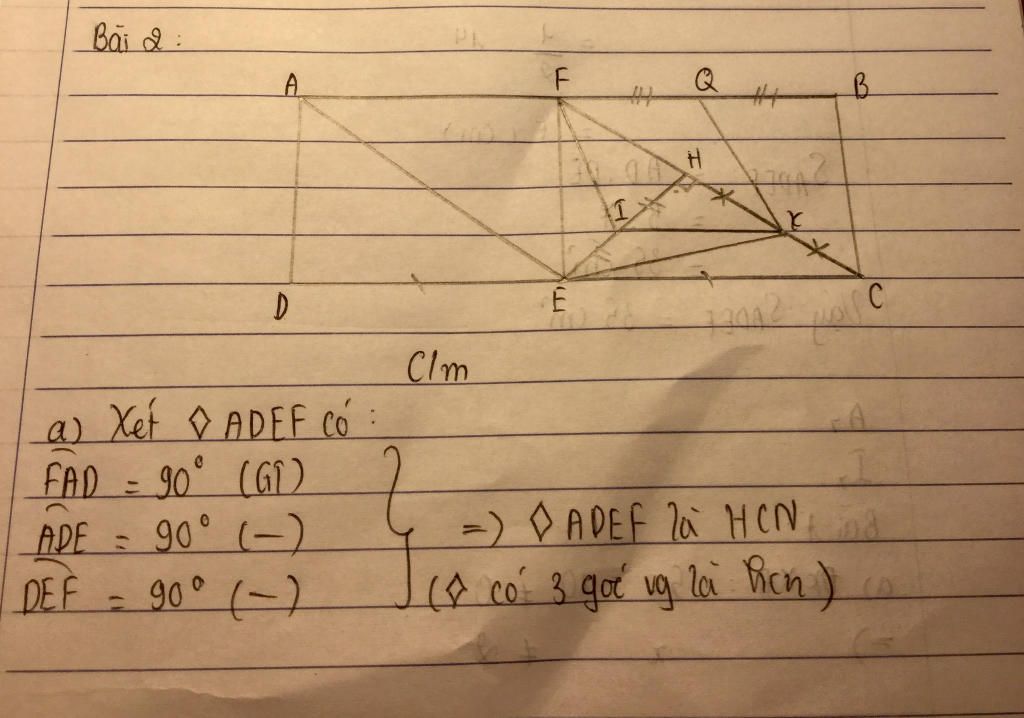 Bài 2 :
A F Q B
H
I K
D E C
C/m
a) Xét ◇ ADEF có :
FAD = 90° (GT)
ADE = 90° (—) => ◇ ADEF là HCN
DEF = 90° (—) (◇ có 3 góc vg là hcn)